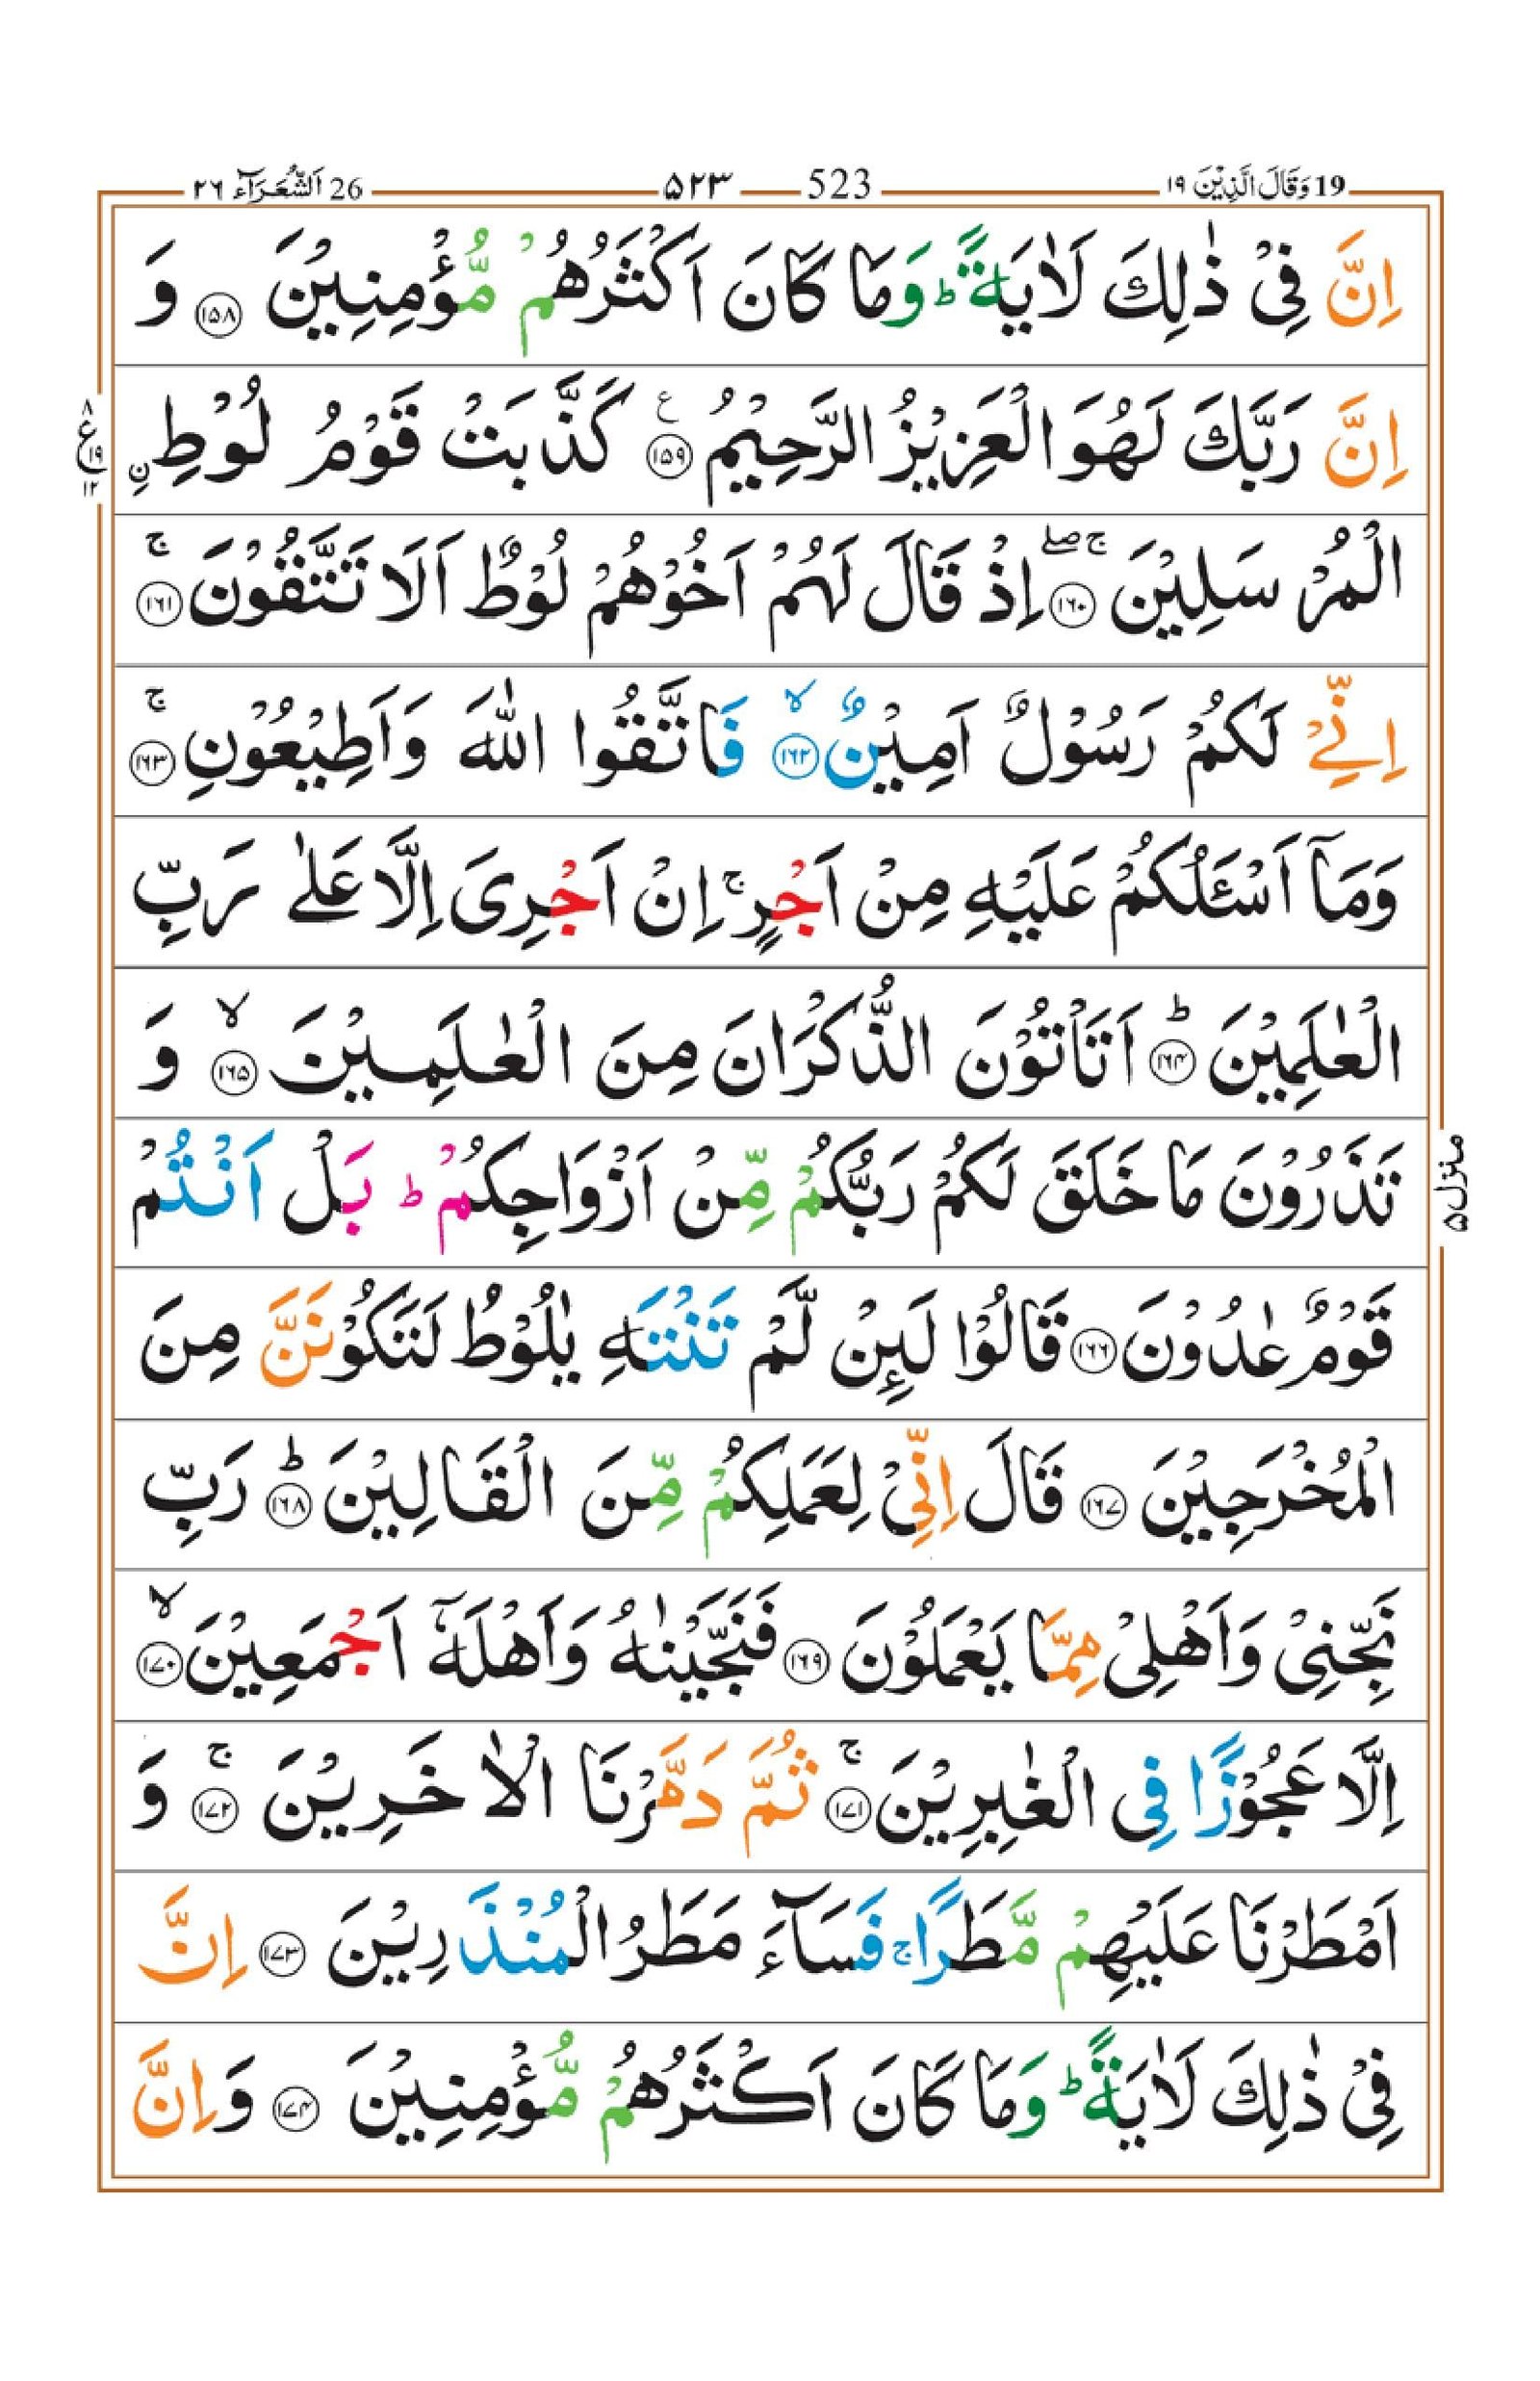 19 وَقَالَ الَّذِيْنَ ١٩ 523 ۵۲۳ 26 اَلشُّعَرَآء ٢٦
اِنَّ فِىْ ذٰلِكَ لَاٰيَةً ؕ وَمَا كَانَ اَكْثَرُهُمْ مُّؤْمِنِيْنَ ﴿۱۵۸﴾ وَ
اِنَّ رَبَّكَ لَهُوَ الْعَزِيْزُ الرَّحِيْمُ ﴿۱۵۹﴾ ع كَذَّبَتْ قَوْمُ لُوْطِ ۨ
الْمُرْسَلِيْنَ ﴿۱۶۰﴾ ج صلے اِذْ قَالَ لَهُمْ اَخُوْهُمْ لُوْطٌ اَلَا تَتَّقُوْنَ ﴿۱۶۱﴾ ۚ
اِنِّىْ لَكُمْ رَسُوْلٌ اَمِيْنٌ ﴿۱۶۲﴾ ۙ فَاتَّقُوا اللّٰهَ وَاَطِيْعُوْنِ ﴿۱۶۳﴾ ۚ
وَمَاۤ اَسْئَلُكُمْ عَلَيْهِ مِنْ اَجْرٍ ۚ اِنْ اَجْرِىَ اِلَّا عَلٰى رَبِّ
الْعٰلَمِيْنَ ﴿۱۶۴﴾ ؕ اَتَاْتُوْنَ الذُّكْرَانَ مِنَ الْعٰلَمِيْنَ ﴿۱۶۵﴾ ۙ وَ
تَذَرُوْنَ مَا خَلَقَ لَكُمْ رَبُّكُمْ مِّنْ اَزْوَاجِكُمْ ؕ بَلْ اَنْتُمْ
قَوْمٌ عٰدُوْنَ ﴿۱۶۶﴾ قَالُوْا لَئِنْ لَّمْ تَنْتَهِ يٰلُوْطُ لَتَكُوْنَنَّ مِنَ
الْمُخْرَجِيْنَ ﴿۱۶۷﴾ قَالَ اِنِّىْ لِعَمَلِكُمْ مِّنَ الْقَالِيْنَ ﴿۱۶۸﴾ ؕ رَبِّ
نَجِّنِىْ وَاَهْلِىْ مِمَّا يَعْمَلُوْنَ ﴿۱۶۹﴾ فَنَجَّيْنٰهُ وَاَهْلَهٗۤ اَجْمَعِيْنَ ﴿۱۷۰﴾ ۙ
اِلَّا عَجُوْزًا فِى الْغٰبِرِيْنَ ﴿۱۷۱﴾ ۚ ثُمَّ دَمَّرْنَا الْاٰخَرِيْنَ ﴿۱۷۲﴾ ۚ وَ
اَمْطَرْنَا عَلَيْهِمْ مَّطَرًا ۚ فَسَآءَ مَطَرُ الْمُنْذَرِيْنَ ﴿۱۷۳﴾ اِنَّ
فِىْ ذٰلِكَ لَاٰيَةً ؕ وَمَا كَانَ اَكْثَرُهُمْ مُّؤْمِنِيْنَ ﴿۱۷۴﴾ وَاِنَّ
۸ ع ۱۹ ۱۲
منزل ۵